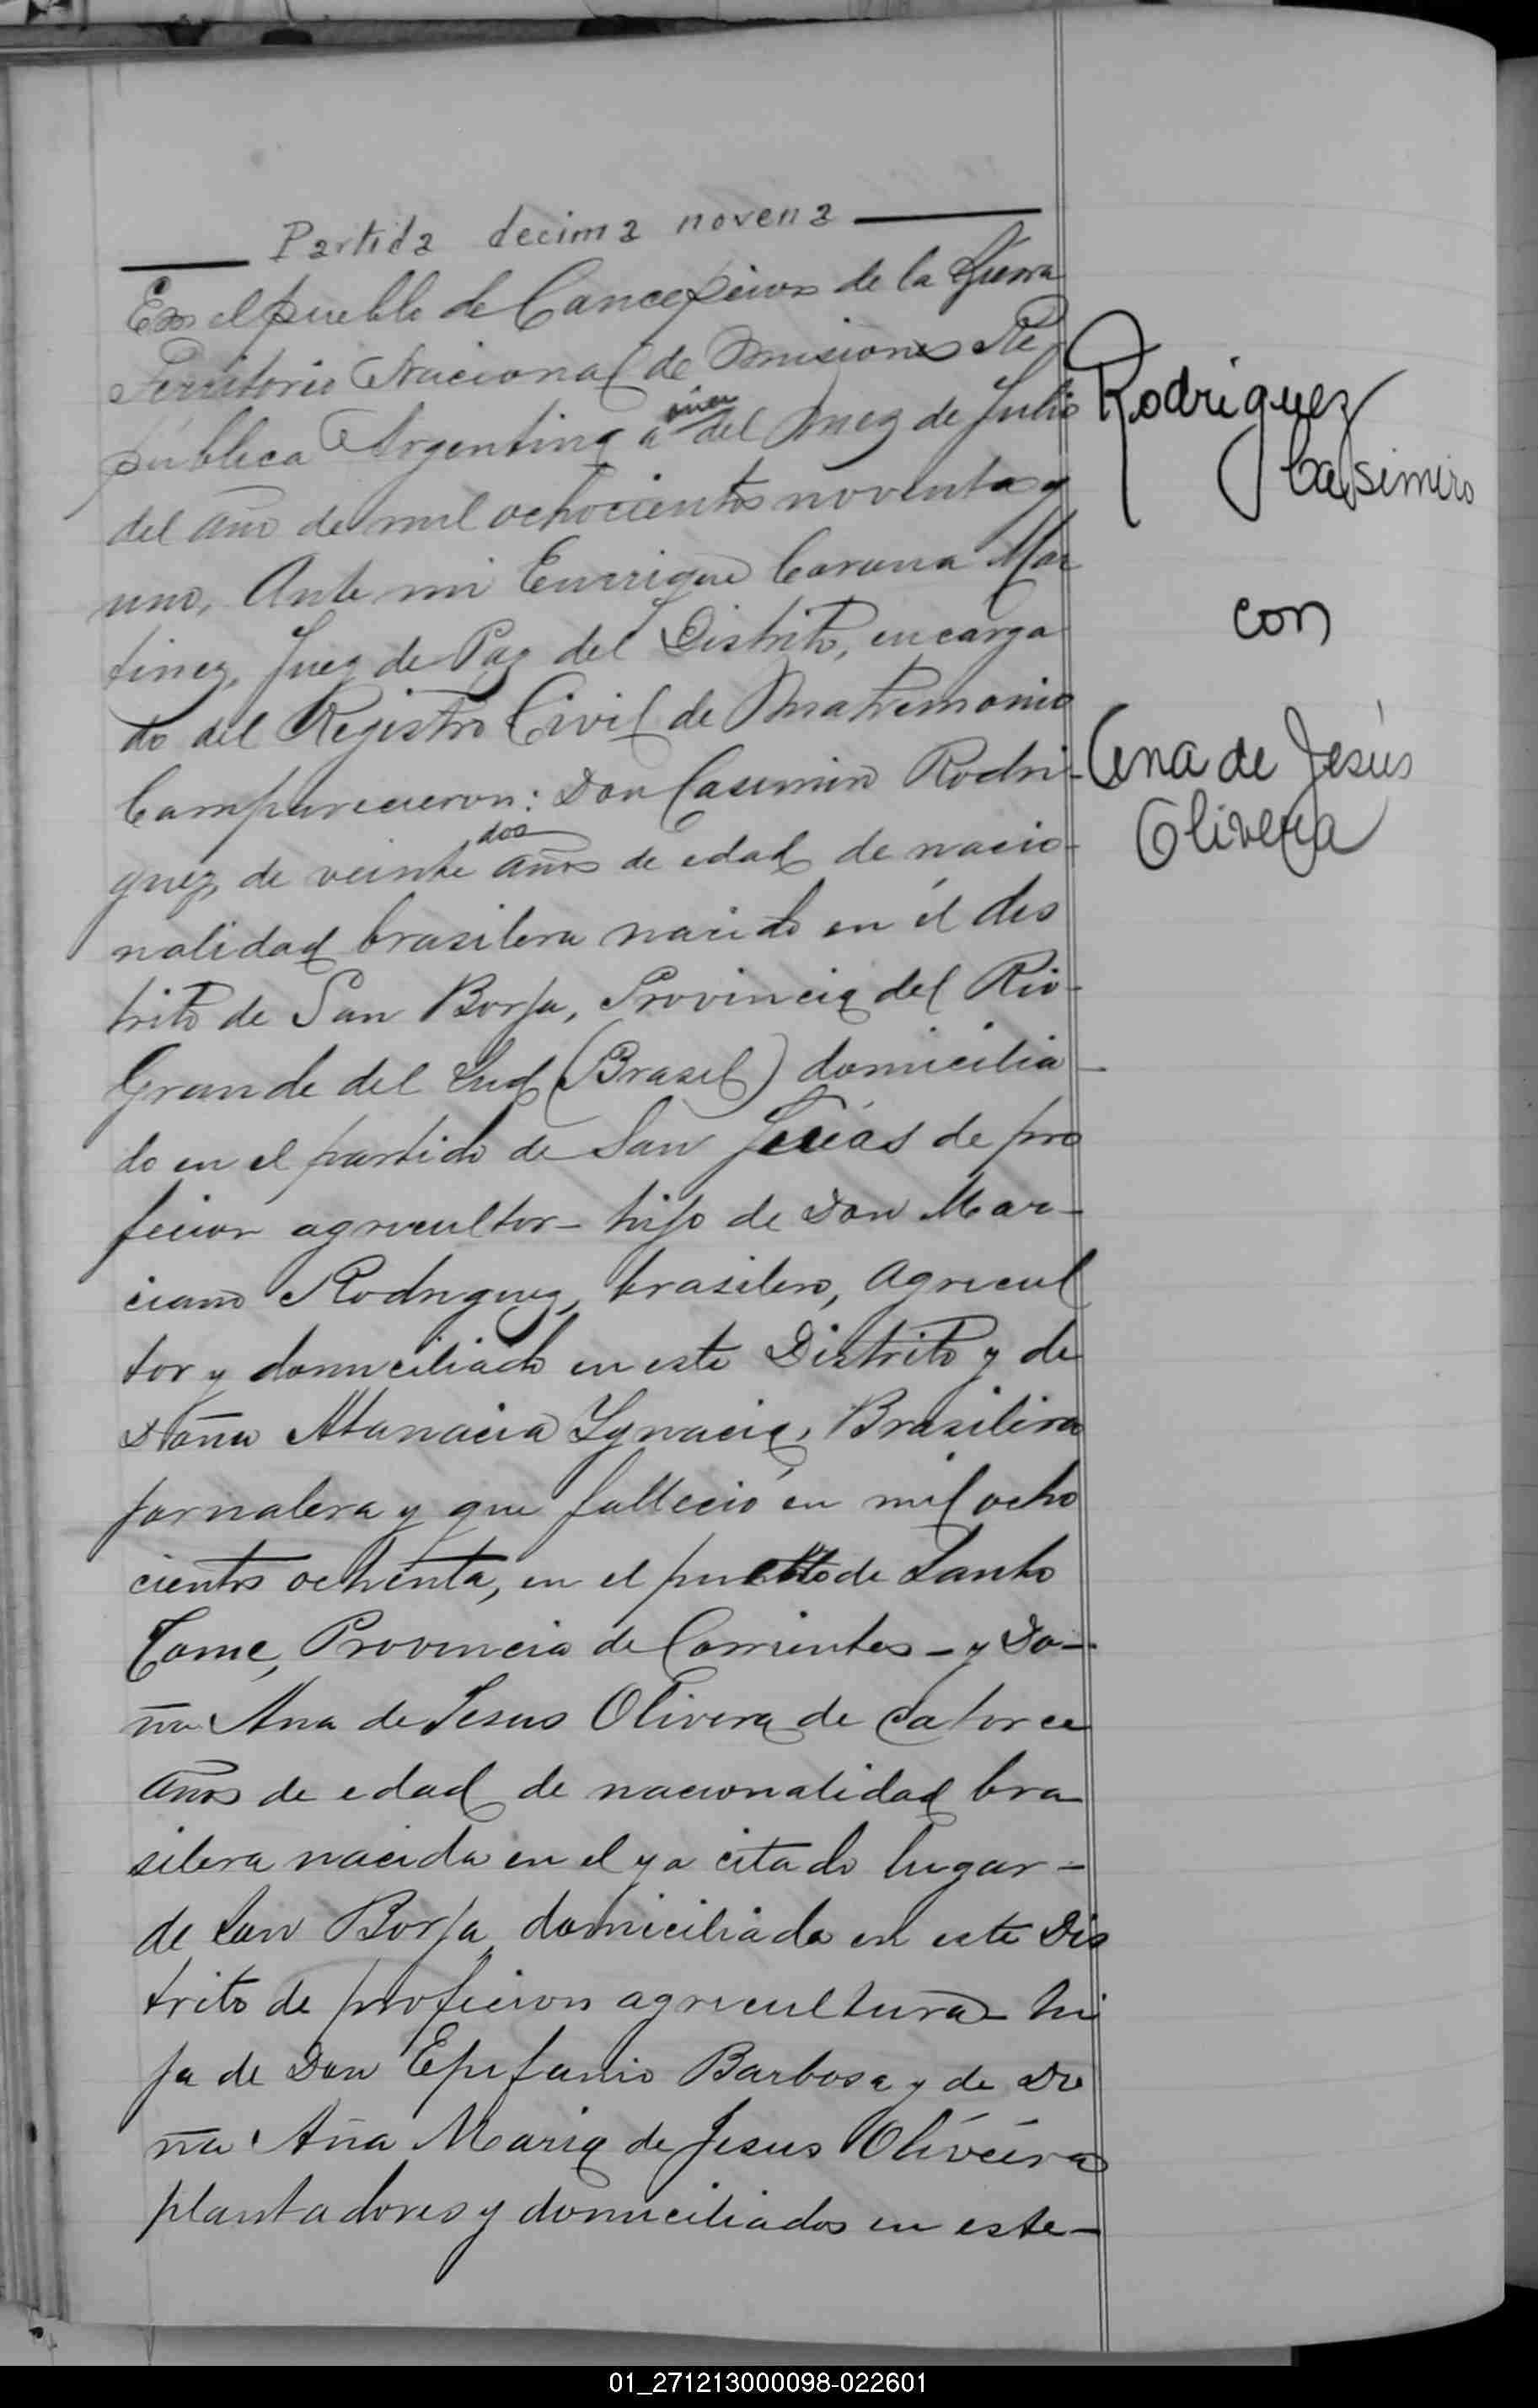 Partida decima novena
En el pueblo de Concepcion de la Sierra
Territorio Nacional de Misiones Re
pública Argentina a del mez de Julio
del año de mil ochocientos noventa y
uno, Ante mi Enrrique Corona Mar
tinez, Juez de Paz del Distrito, encarga
do del Registro Civil de Matremonio
Comparecieron: Don Casimiro Rodri-
guez, de veinte dos años de edad de nacio-
nalidad brasilera nacido en él dis
trito de San Borja, Provincia del Rio-
Grande del Sud (Brasil) domicilia-
do en el partido de San de pro
fecion agricultor - hijo de Don Mar-
ciano Rodriguez, brasilero, agricul
tor y domiciliado en este Distrito y de
Doña Atanacia Ygnacia, Brasilera
jornalera y que falleció en mil ocho
cientos ochenta, en el de Santo
Tome, Provincia de Corrientes - y Do-
ña Ana de Jesus Olivera de catorce
años de edad de nacionalidad bra
silera nacida en el ya citado lugar -
de San Borja domiciliada en este Dis
trito de profecion agricultura hi
ja de Don Epifanio Barbosa y de Do
ña Ana Maria de Jesus Oliveira
plantadores y domiciliados en este -
Rodriguez
Casimiro
con
Ana de Jesús
Olivera
01_271213000098-022601